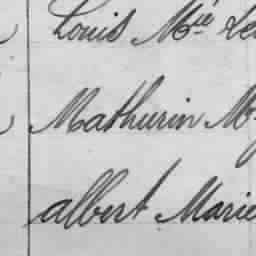 Louis Mie Le
Mathurin M
albert Marie